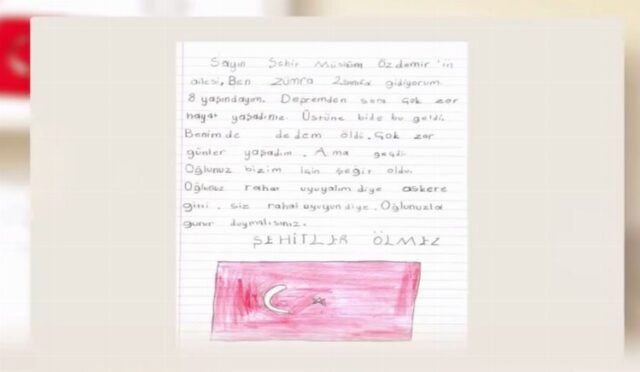 Sayın Şehir Müslüm Özdemir'in
ailesi, Ben Zümra 2.sınıfa gidiyorum
8 yaşındayım. Depremden sora çok zor
hayat yaşadınız. Üstüne bide bu geldi.
Benimde dedem öldi. Çok zor
günler yaşadım. Ama geçdi
Oğlunuz bizim için şeğit oldu.
Oğlunuz rahat uyuyalım diye askere
gini. siz rahat uyuyun diye. Oğlunuzla
gurur duymalısınız.
ŞEHİTLER ÖLMEZ